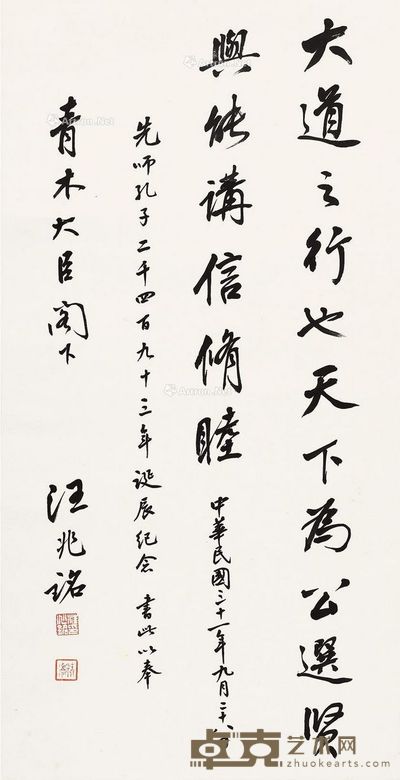 大道之行也天下為公選賢
與能講信脩睦 中華民國三十一年九月二十八日
先師孔子二千四百九十三年誕辰紀念 書此以奉
青木大臣閣下
汪兆銘
卓克艺术网
www.zhuokearts.com